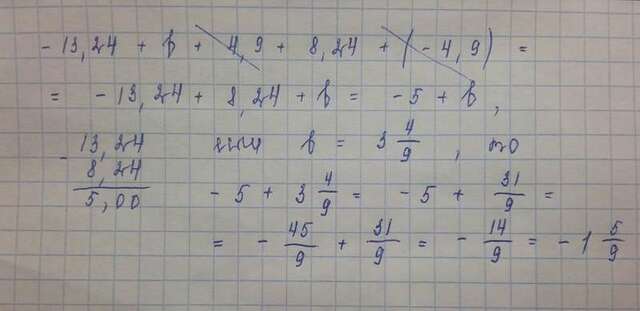 - 13,24 + b + 4,9 + 8,24 + (- 4,9) =
= - 13,24 + 8,24 + b = - 5 + b,
- 13,24 если b = 3 4/9, то
8,24
5,00 - 5 + 3 4/9 = - 5 + 31/9 =
= - 45/9 + 31/9 = - 14/9 = - 1 5/9